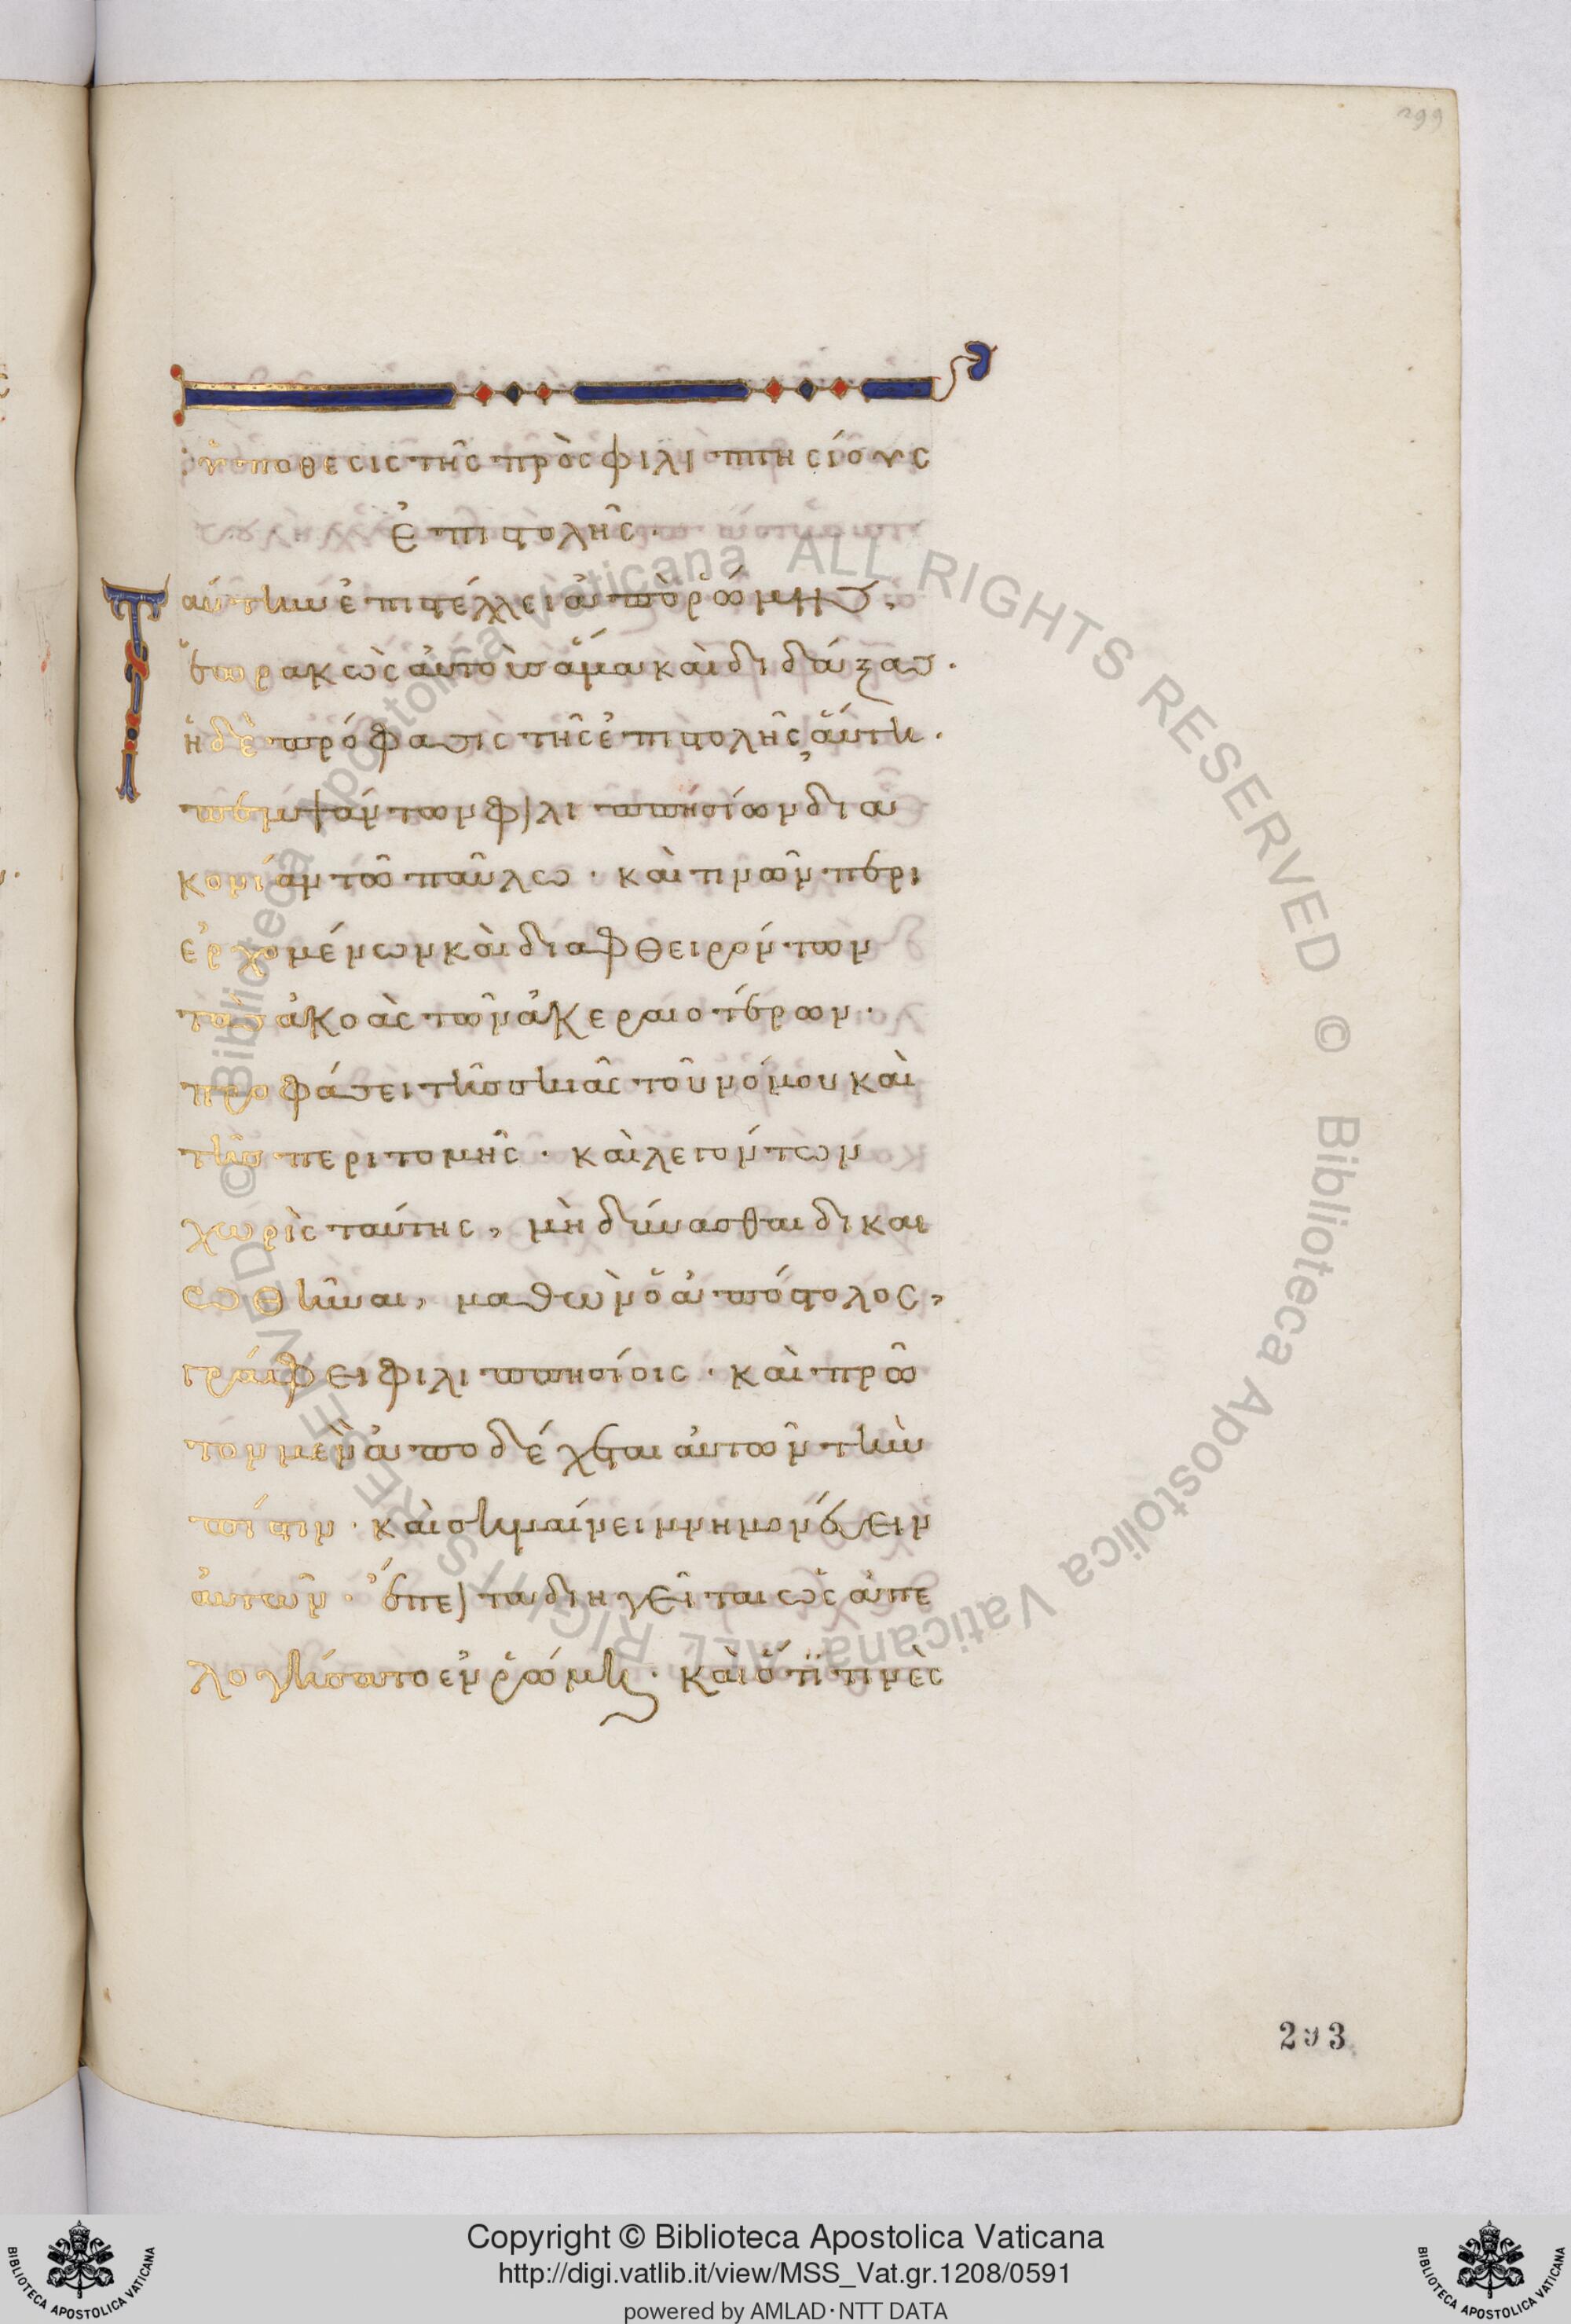 299
ὑπόθεσις τῆς πρὸς φιλιππησίους
ἐπιστολῆς·
Ταύτην ἐπιστέλλει ἀπὸ ῥώμης,
ἑωρακὼς αὐτοὺς ἅμα καὶ διδάξας·
ἡ δὲ πρόφασις τῆς ἐπιστολῆς, αὕτη·
πεμψάντων φιλιππησίων δια
κονίαν τῶ παύλω· καὶ τινῶν περι
ερχομένων καὶ διαφθειρόντων
τὰς ἀκοὰς τῶν ἀκεραιοτέρων·
προφάσει τῆς σκιᾶς τοῦ νόμου καὶ
τῆς περιτομῆς· καὶ λεγόντων
χωρὶς ταύτης, μὴ δύνασθαι δικαι
ωθῆναι, μαθὼν ὁ ἀπόστολος,
γράφει φιλιππησίοις· καὶ πρῶ
τον μὲν ἀποδέχεται αὐτῶν τὴν
πίστιν· καὶ σημαίνει μνημονεύειν
αὐτῶν· ἔπειτα διηγεῖται ὡς ἀπε
λογήσατο ἐν ῥώμη· καὶ ὅτι τινὲς
293
© Biblioteca Apostolica Vaticana ALL RIGHTS RESERVED © Biblioteca Apostolica Vaticana ALL RIGHTS RESERVED
BIBLIOTECA APOSTOLICA VATICANA
Copyright © Biblioteca Apostolica Vaticana
http://digi.vatlib.it/view/MSS_Vat.gr.1208/0591
powered by AMLAD·NTT DATA
BIBLIOTECA APOSTOLICA VATICANA